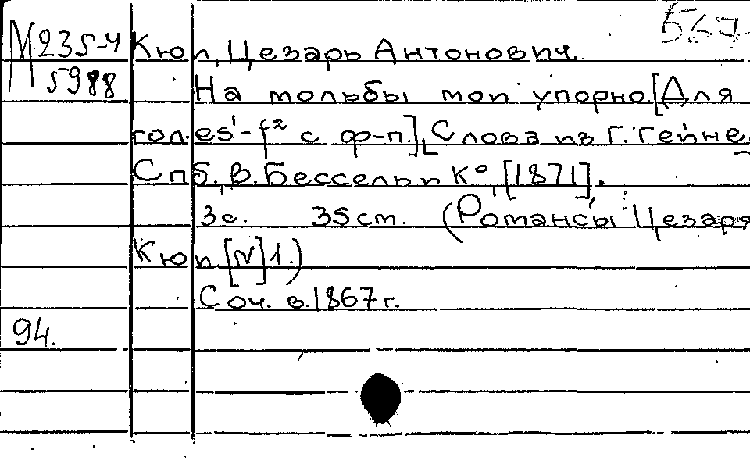 М235-4 Кюи, Цезарь Антонович.
5988 На мольбы мои упорно [Для
гол. es'-f² с ф-п]. Слова из Г. Гейне.
Спб., В. Бессель и К°, [1871].
3 с. 35 см. (Романсы Цезаря
Кюи [N] 1.)
Соч. в. 1867 г.
94.